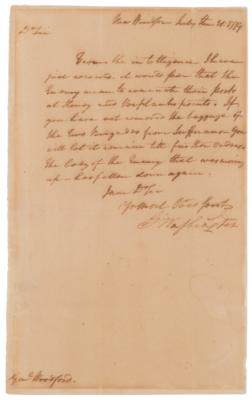 New Windsor July the 21. 1779
Dr Sir
From the intelligence I have
just received, it would seem that the
Enemy mean to evacuate their posts
at Stoney and Verplanks points. If
you have not removed the baggage of
the two Brigades from Sufferans You
will let it remain till further orders.
The body of the Enemy that was moving
up has fallen down again.
I am Dr Sir
Yr most Obed Servt
G Washington
Genl Woodford.